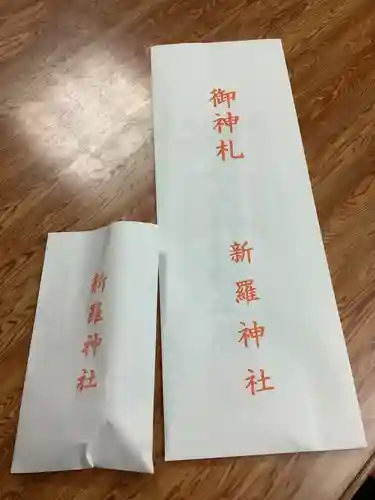 御神札
新羅神社
新羅神社